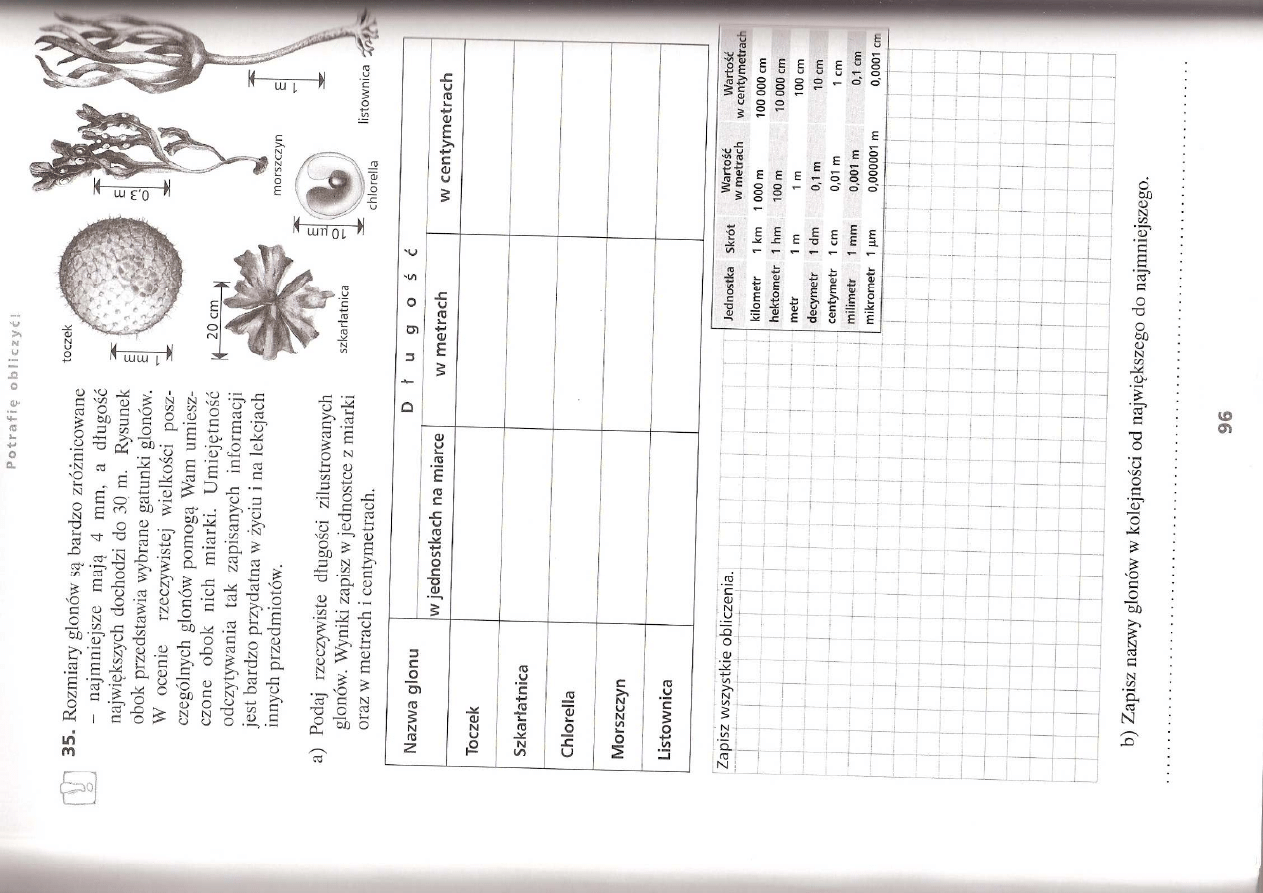 Potrafię obliczyć!
35. Rozmiary glonów są bardzo zróżnicowane
– najmniejsze mają 4 mm, a długość
największych dochodzi do 30 m. Rysunek
obok przedstawia wybrane gatunki glonów.
W ocenie rzeczywistej wielkości posz-
czególnych glonów pomogą Wam umiesz-
czone obok nich miarki. Umiejętność
odczytywania tak zapisanych informacji
jest bardzo przydatna w życiu i na lekcjach
innych przedmiotów.
toczek
1 mm
0,3 m
morszczyn
1 m
listownica
20 cm
szkarłatnica
10 µm
chlorella
a) Podaj rzeczywiste długości zilustrowanych
glonów. Wyniki zapisz w jednostce z miarki
oraz w metrach i centymetrach.
Nazwa glonu
Długość
w jednostkach na miarce
w metrach
w centymetrach
Toczek
Szkarłatnica
Chlorella
Morszczyn
Listownica
Zapisz wszystkie obliczenia.
Jednostka Skrót Wartość w metrach Wartość w centymetrach
kilometr 1 km 1 000 m 100 000 cm
hektometr 1 hm 100 m 10 000 cm
metr 1 m 1 m 100 cm
decymetr 1 dm 0,1 m 10 cm
centymetr 1 cm 0,01 m 1 cm
milimetr 1 mm 0,001 m 0,1 cm
mikrometr 1 µm 0,000001 m 0,0001 cm
b) Zapisz nazwy glonów w kolejności od największego do najmniejszego.
96